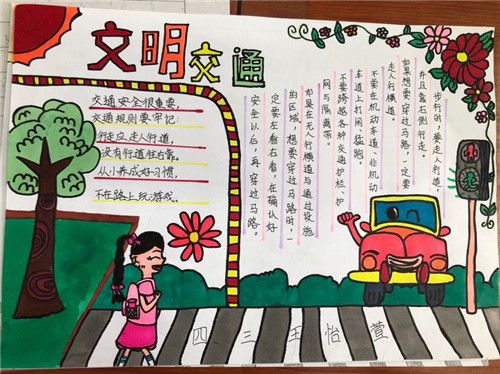 文明交通
交通安全很重要,
交通规则要牢记;
行走应走人行道,
没有行道往右靠。
从小养成好习惯,
不在路上玩游戏。
步行时,要走人行道,
并且靠右侧行走。
如果想要穿过马路,一定要
走人行横道。
不要在机动车道、非机动
车道上打闹、猛跑。
不要跨越各种交通护栏、护
网与隔离带。
如果在无人行横道与通过设施
的区域,想要穿过马路时,一
定要左看右看,在确认好
安全以后,再穿过马路。
四、三王怡萱